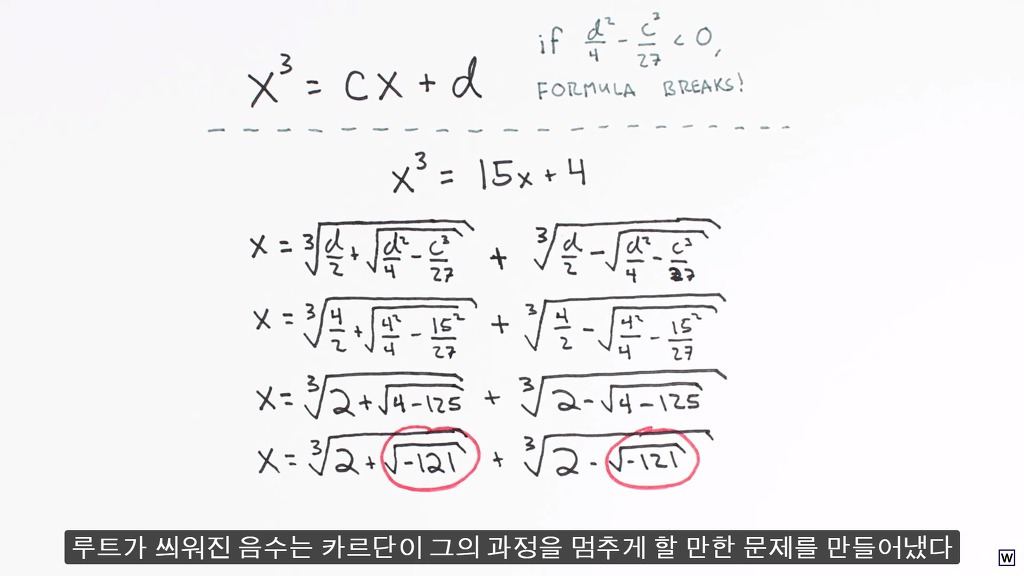 x³ = cx + d
if d²/4 - c³/27 < 0,
FORMULA BREAKS!
x³ = 15x + 4
x = ³√(d/2 + √(d²/4 - c³/27)) + ³√(d/2 - √(d²/4 - c³/27))
x = ³√(4/2 + √(4²/4 - 15²/27)) + ³√(4/2 - √(4²/4 - 15²/27))
x = ³√(2 + √(4-125)) + ³√(2 - √(4-125))
x = ³√(2 + √(-121)) + ³√(2 - √(-121))
루트가 씌워진 음수는 카르단이 그의 과정을 멈추게 할 만한 문제를 만들어냈다
W